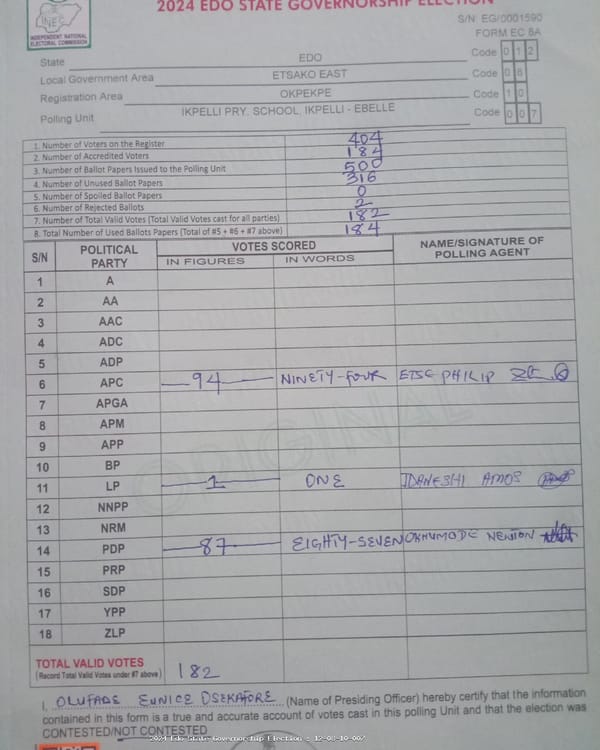 2024 EDO STATE GOVERNORSHIP ELECTION
S/N EG/0001590
FORM EC 8A
INEC
INDEPENDENT NATIONAL ELECTORAL COMMISSION
State EDO Code 0 1 2
Local Government Area ETSAKO EAST Code 0 8
Registration Area OKPEKPE Code 1 0
Polling Unit IKPELLI PRY. SCHOOL, IKPELLI - EBELLE Code 0 0 7
1. Number of Voters on the Register 404
2. Number of Accredited Voters 184
3. Number of Ballot Papers Issued to the Polling Unit 500
4. Number of Unused Ballot Papers 316
5. Number of Spoiled Ballot Papers 0
6. Number of Rejected Ballots 2
7. Number of Total Valid Votes (Total Valid Votes cast for all parties) 182
8. Total Number of Used Ballots Papers (Total of #5 + #6 + #7 above) 184
S/N POLITICAL PARTY VOTES SCORED NAME/SIGNATURE OF POLLING AGENT
IN FIGURES IN WORDS
1 A
2 AA
3 AAC
4 ADC
5 ADP
6 APC 94 NINETY-FOUR ETSE PHILIP
7 APGA
8 APM
9 APP
10 BP
11 LP 1 ONE IDANESHI AMOS
12 NNPP
13 NRM
14 PDP 87 EIGHTY-SEVEN OKHUMODE NEWTON
15 PRP
16 SDP
17 YPP
18 ZLP
TOTAL VALID VOTES
(Record Total Valid Votes under #7 above) 182
I, OLUFADE EUNICE OSEKAFORE (Name of Presiding Officer) hereby certify that the information
contained in this form is a true and accurate account of votes cast in this polling Unit and that the election was
CONTESTED/NOT CONTESTED
2024 Edo State Governorship Election : 12-08-10-007
ORIGINAL